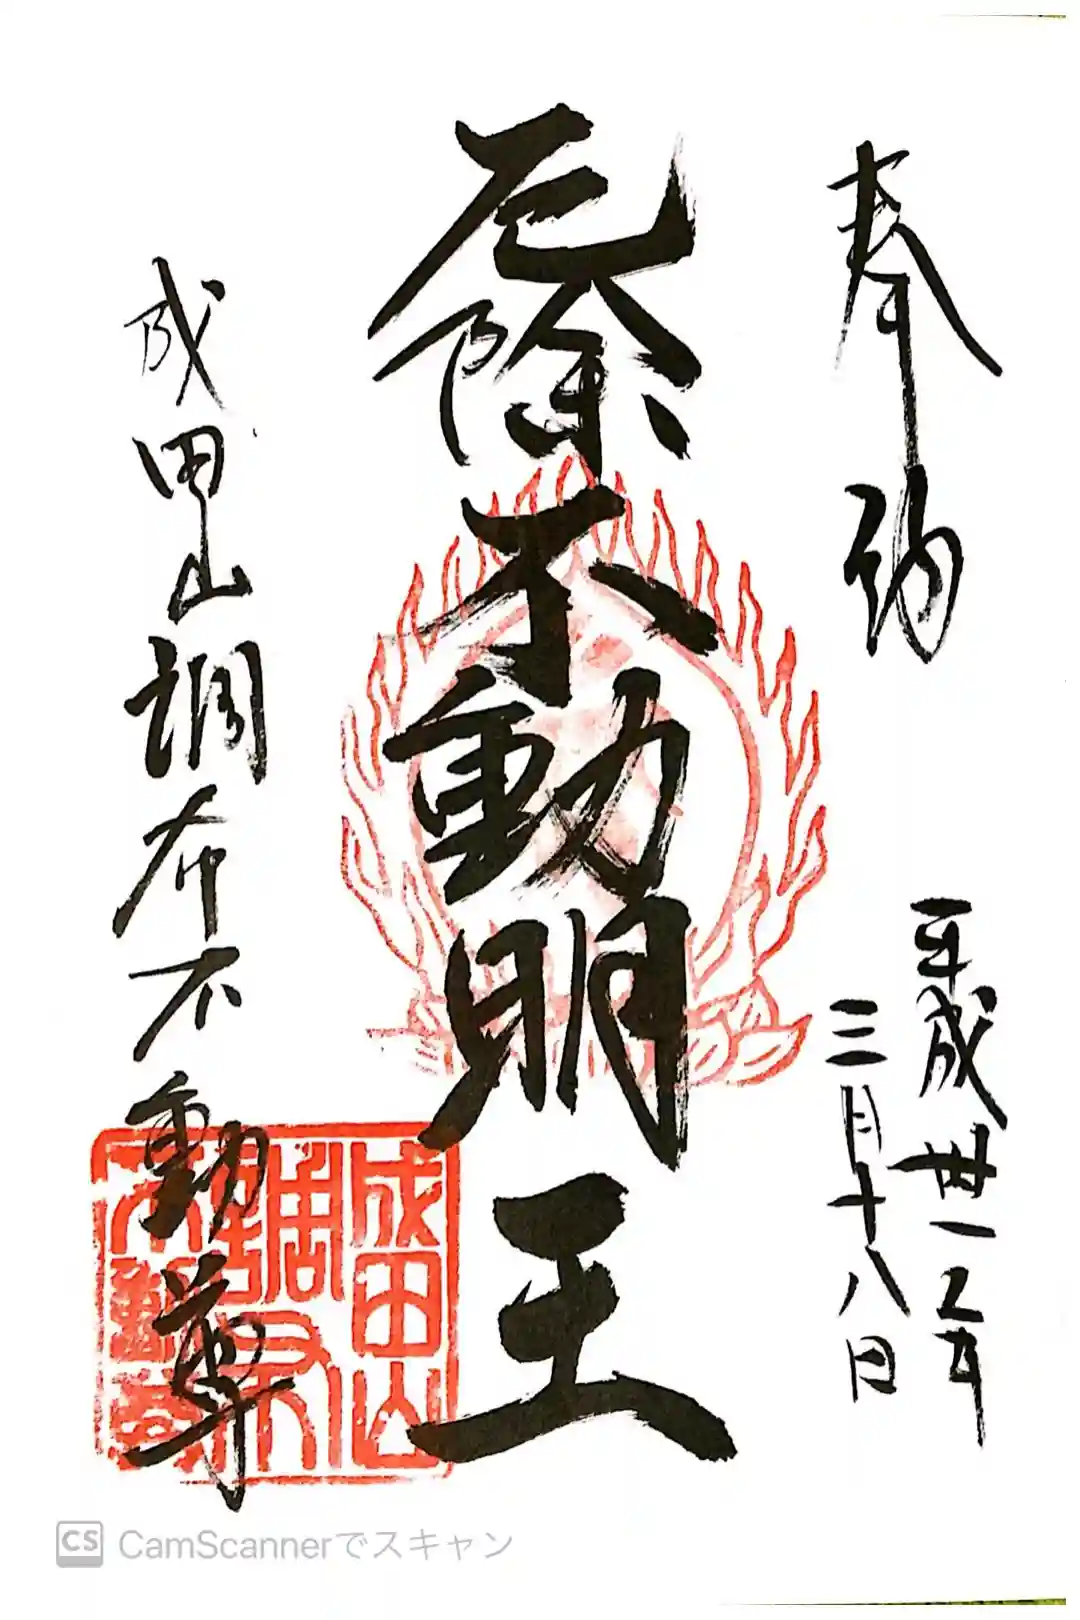 奉納
平成卅一年
三月十八日
厄除
不動明王
成田山調布不動尊
成田山
調布
不動尊
CS CamScannerでスキャン